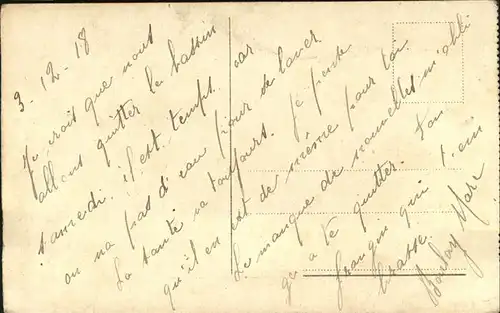 3-12-18
Je crois que nous
allons quitter le bassin
samedi. il est temps car
on na pas d'eau pour se laver
La santé va toujours. Je pense
qu'il en est de même pour toi
Le manque de nouvelles m'obli
ge a te quitter. Ton
frangin qui t'em
brasse
Marc